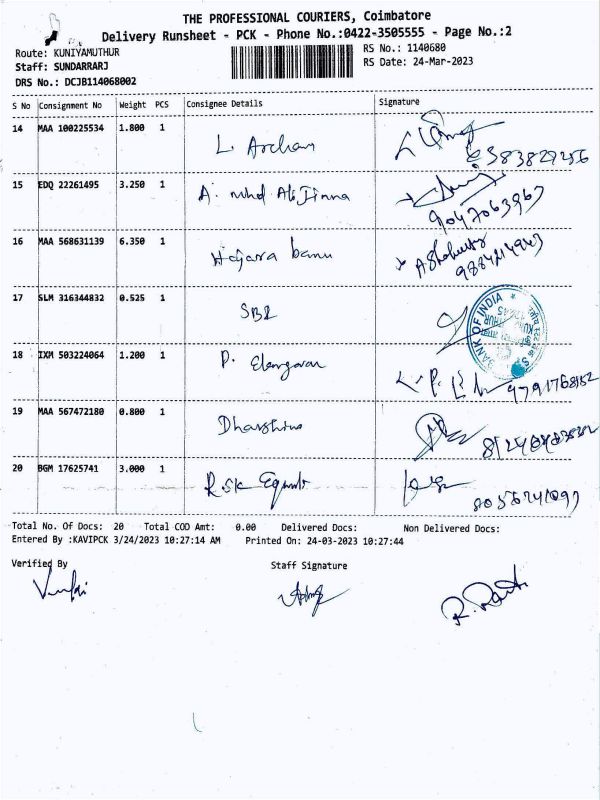 THE PROFESSIONAL COURIERS, Coimbatore
Delivery Runsheet - PCK - Phone No.:0422-3505555 - Page No.:2
Route: KUNIYAMUTHUR
RS No.: 1140680
Staff: SUNDARRARJ
RS Date: 24-Mar-2023
DRS No.: DCJB114068002
S No Consignment No Weight PCS Consignee Details Signature
14 MAA 100225534 1.800 1 L. Archan
15 EDQ 22261495 3.250 1 A. Mhd Ali Jinna 9047063963
16 MAA 568631139 6.350 1 Hajara banu 9884214943
17 SLM 316344832 0.525 1 SBI
BANK OF INDIA
18 IXM 503224064 1.200 1 P. Elangovan 9791768152
19 MAA 567472180 0.800 1 Dharshini
20 BGM 17625741 3.000 1 R.SK
Total No. Of Docs: 20 Total COD Amt: 0.00 Delivered Docs: Non Delivered Docs:
Entered By :KAVIPCK 3/24/2023 10:27:14 AM Printed On: 24-03-2023 10:27:44
Verified By Staff Signature